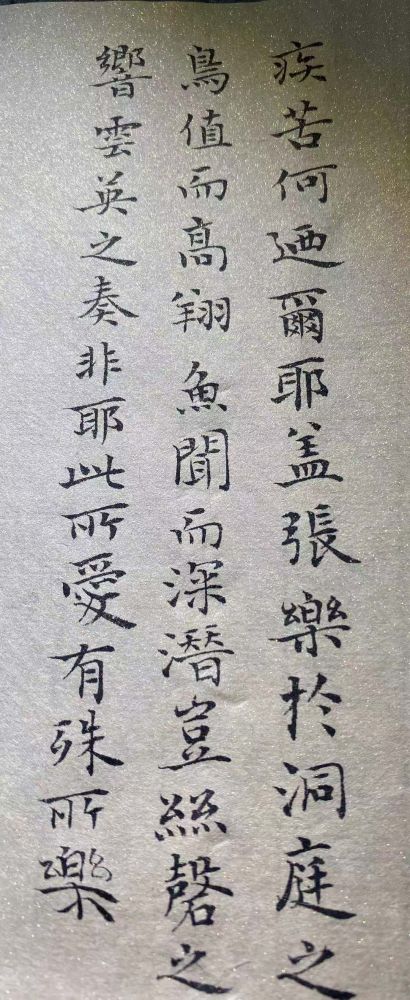 疾苦何迺爾耶盖張樂於洞庭之
鳥值而高翔魚聞而深潛豈絲磬之
響雲英之奏非耶此所愛有殊所樂